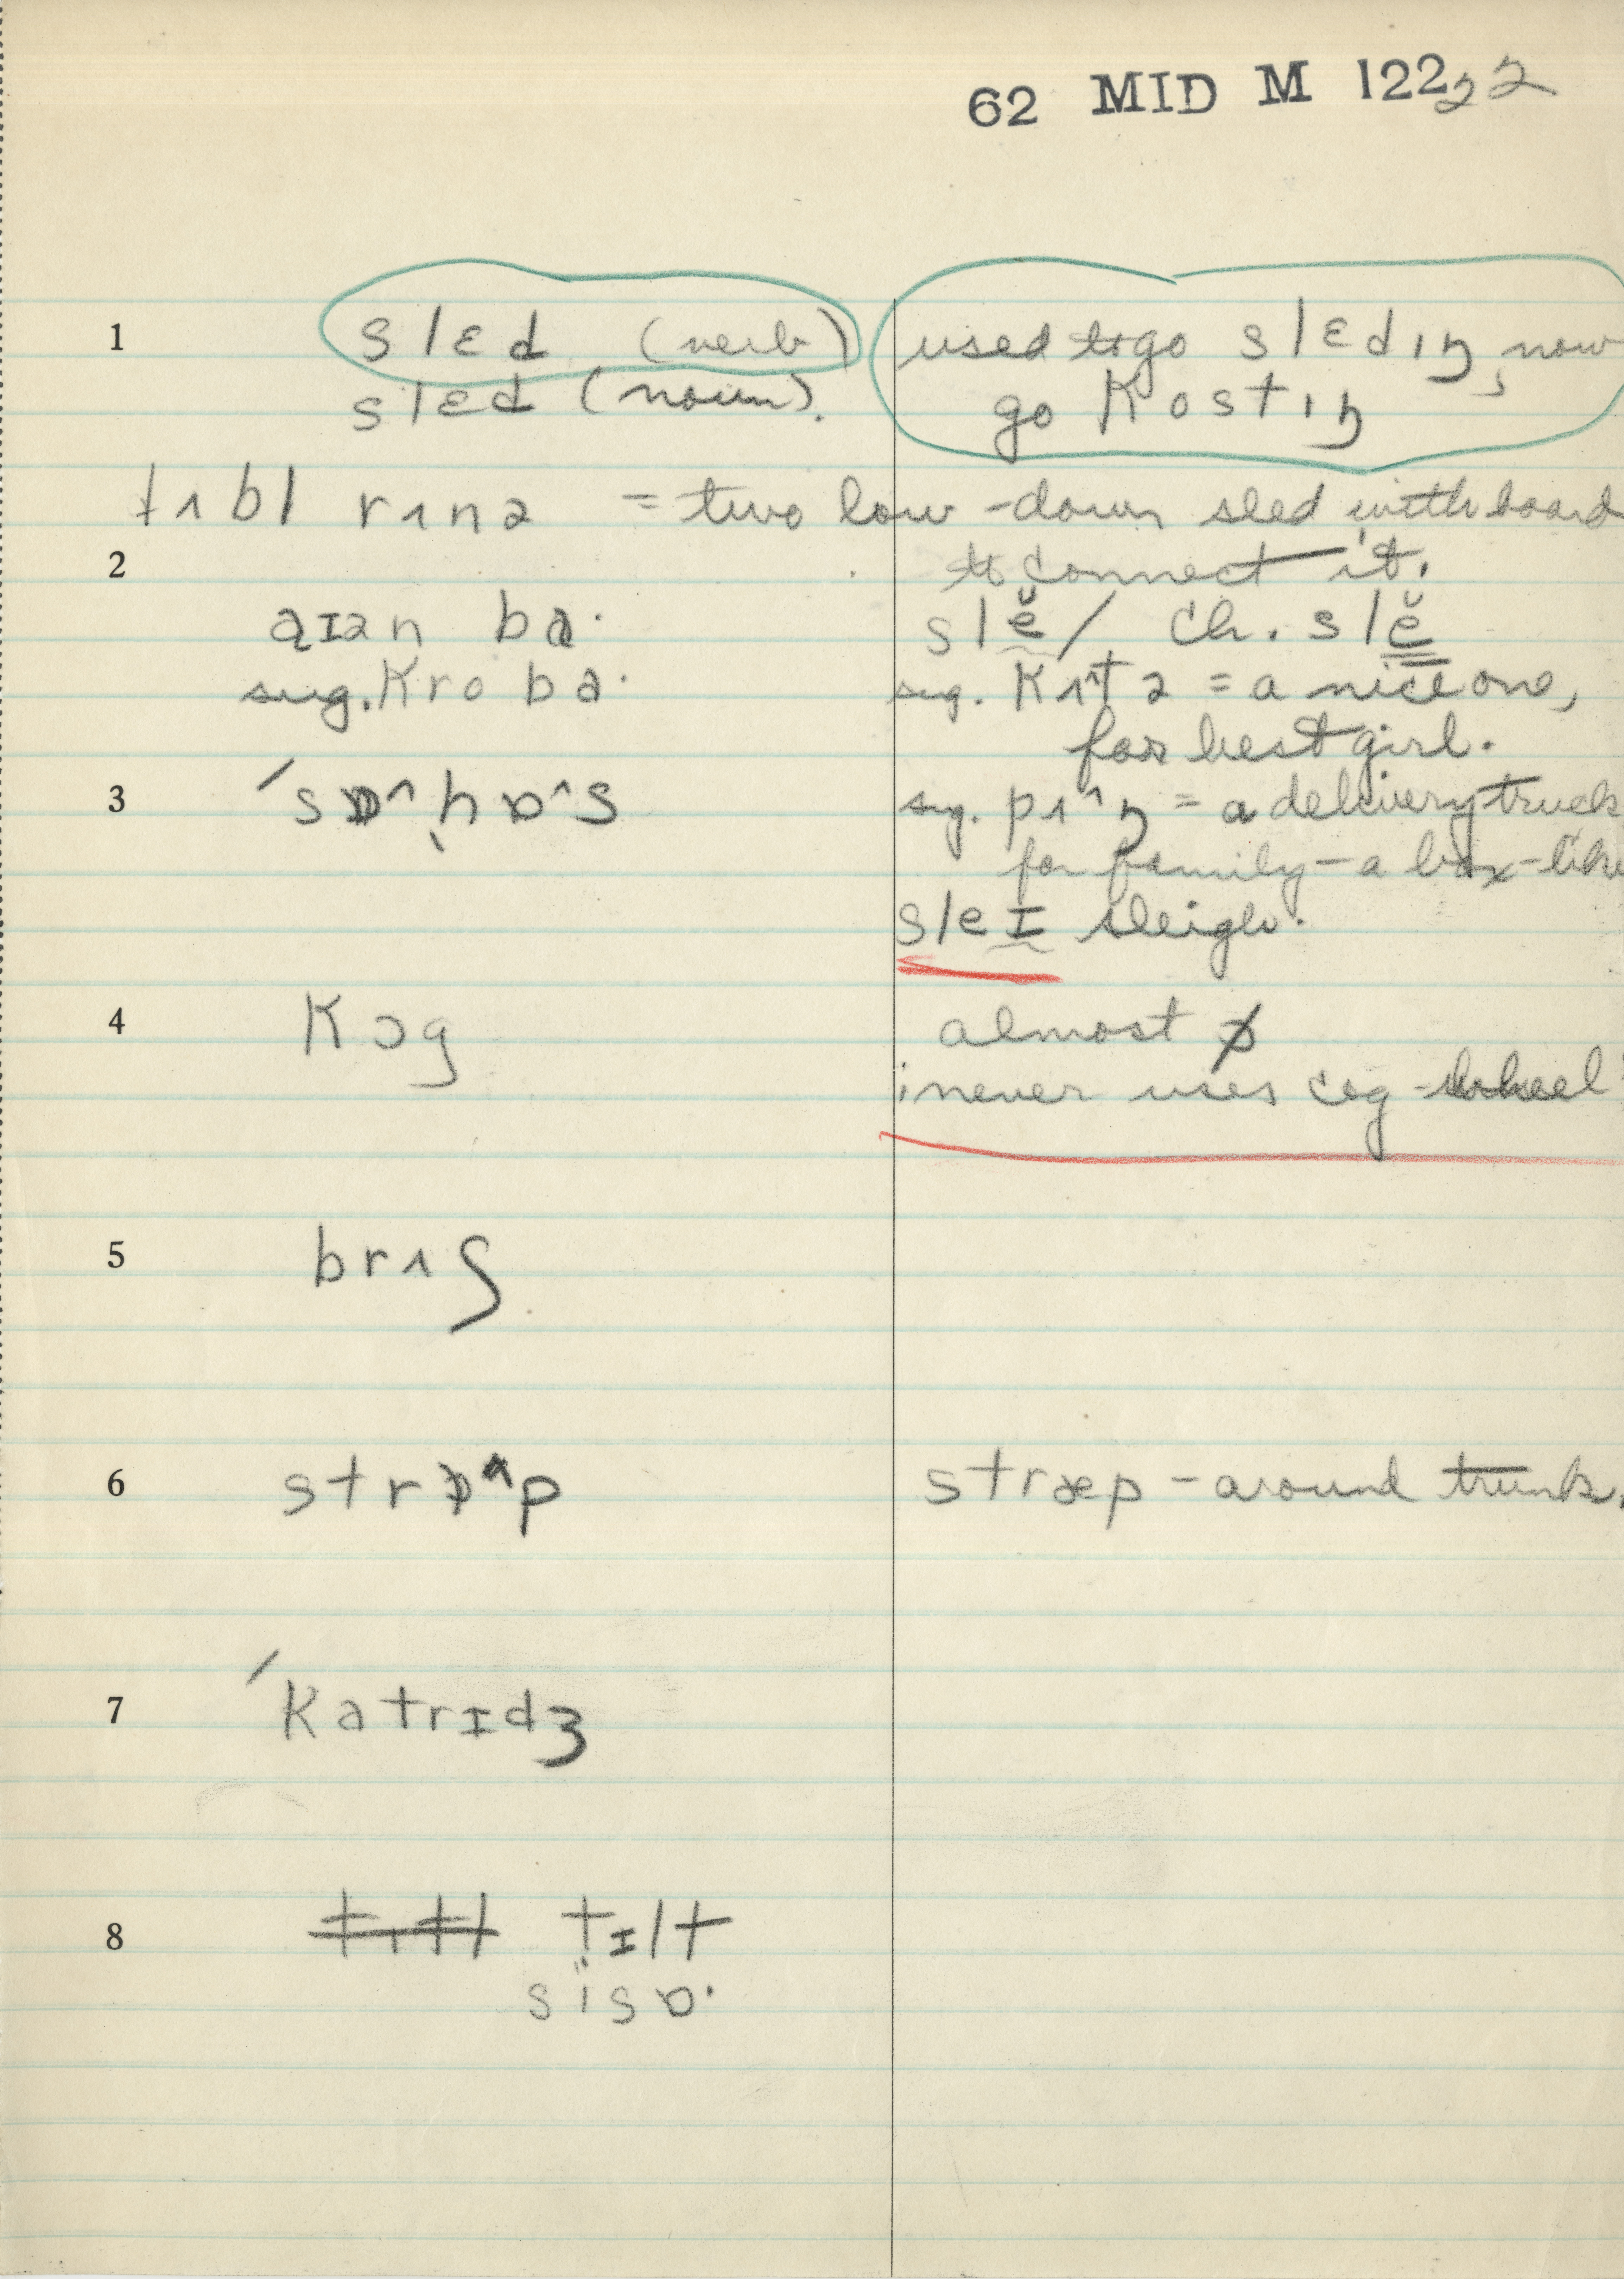 62 MID M 122 22
1 slɛd (verb) used to go slɛdɪŋ, now
slɛd (noun). go kostɪŋ
= two low-down sled with board
2 to connect it.
aɪən ba· slĕ / ch. slĕ
sug. kro ba· sug. = a nice one,
for best girl.
3 ˈsɒ^hɒ^s sug. = a delivery truck
for family - a box-like
sleɪ sleigh.
4 kɔg almost
never uses cog-wheel
5 brʌʃ
6 strɒ^p stræp - around trunk.
7 ˈkatrɪdʒ
8 tɪlt
sisɒ·